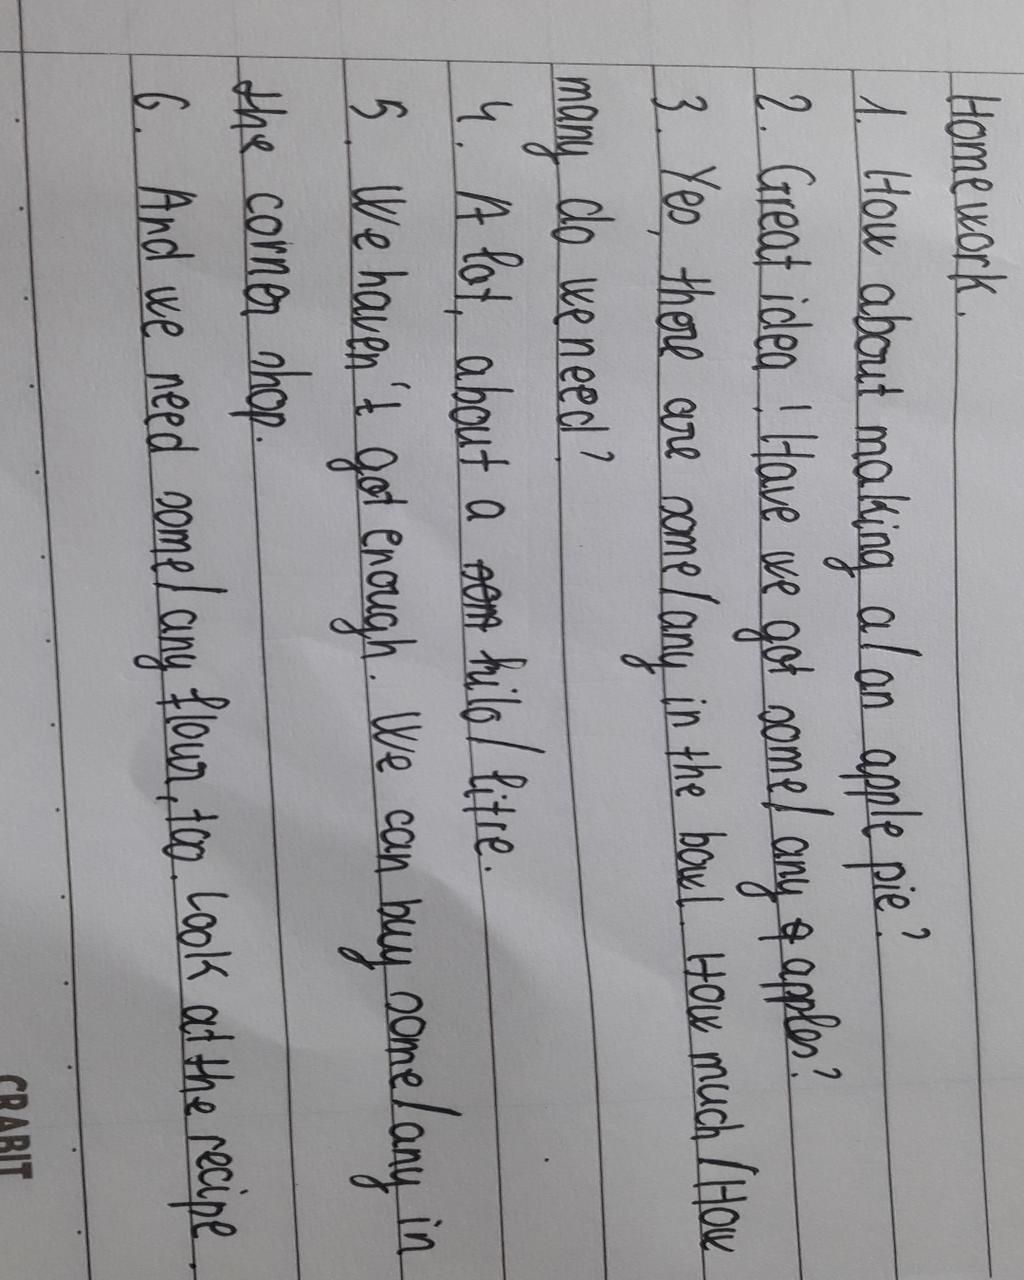 Homework.
1. How about making a/an apple pie?
2. Great idea! Have we got some/any apples?
3. Yes, there are some/any in the bowl. How much/How
many do we need?
4. A lot, about a kilo/litre.
5. We haven't got enough. We can buy some/any in
the corner shop.
6. And we need some/any flour, too. Look at the recipe.
CRABIT